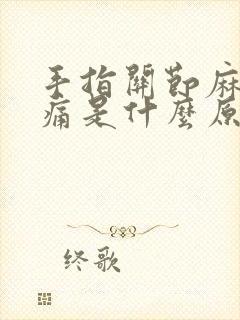 手指關節麻
痛是什麼原
终歌